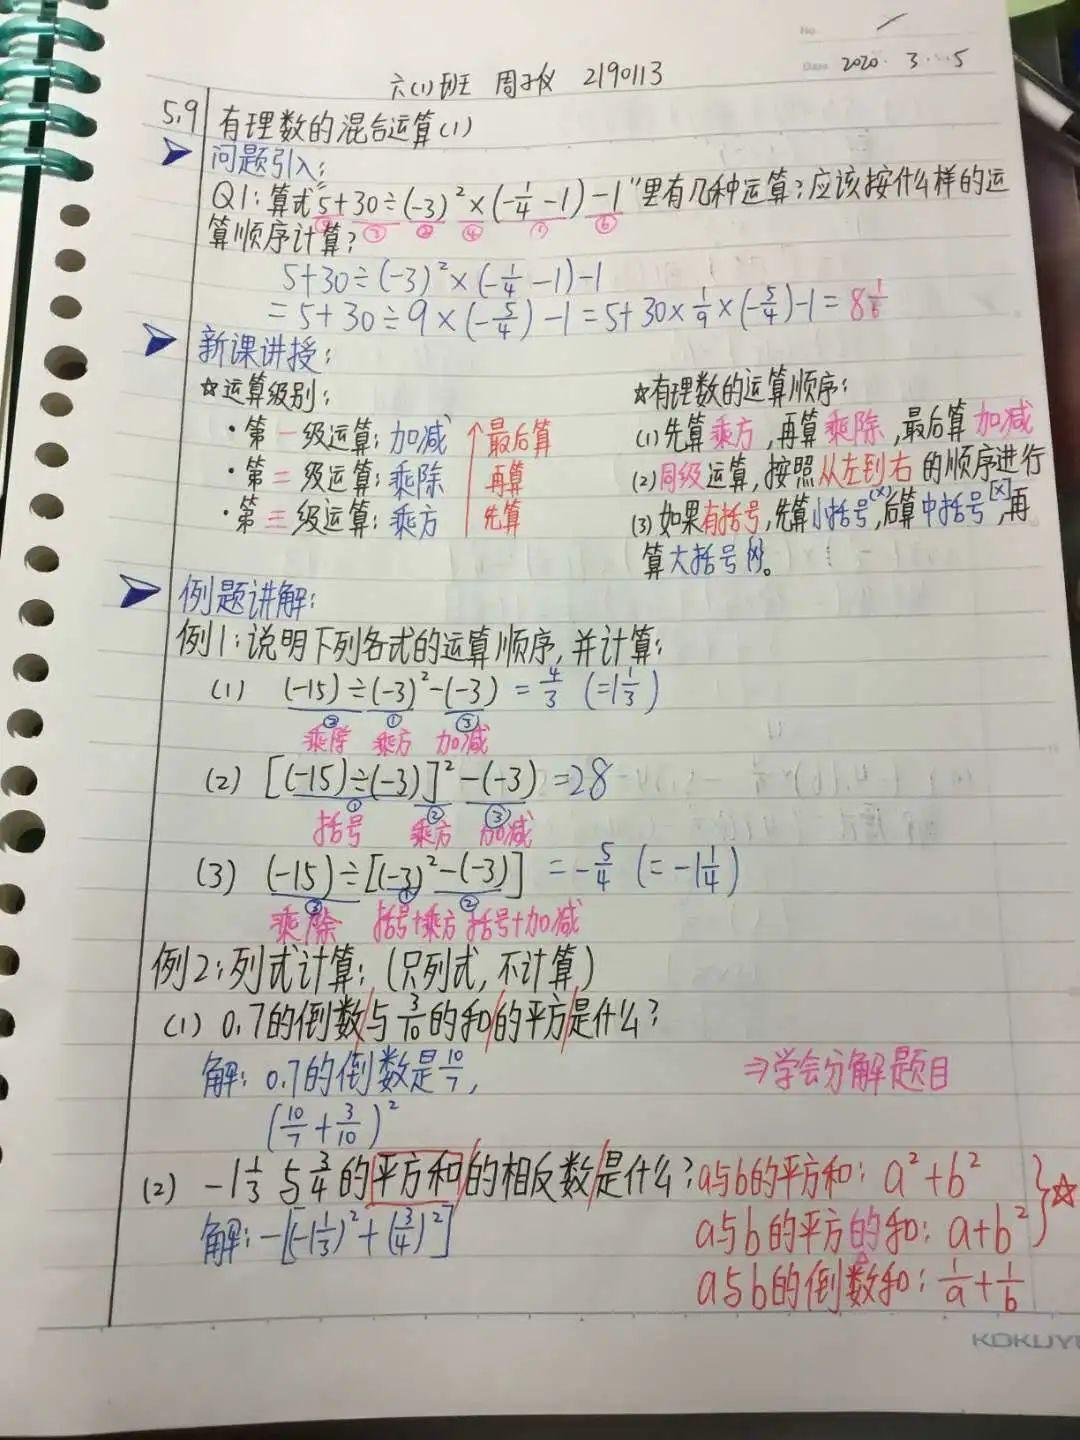 No.
Date 2020. 3. 5
六(1)班 周子仪 2190113
5.9 有理数的混合运算(1)
问题引入:
Q1:算式"5+30÷(-3)²×(-1/4-1)-1"里有几种运算?应该按什么样的运
⑤ ③ ② ④ ① ⑥
算顺序计算?
5+30÷(-3)²×(-1/4-1)-1
=5+30÷9×(-5/4)-1=5+30×1/9×(-5/4)-1=8 1/6
新课讲授:
☆运算级别:
·第一级运算:加减 ↑最后算
·第二级运算:乘除 再算
·第三级运算:乘方 先算
☆有理数的运算顺序:
(1)先算乘方,再算乘除,最后算加减
(2)同级运算,按照从左到右的顺序进行
(3)如果有括号,先算小括号(x),后算中括号[x],再
算大括号{x}。
例题讲解:
例1:说明下列各式的运算顺序,并计算:
(1) (-15)÷(-3)²-(-3)=4/3 (=1 1/3)
② ① ③
乘除 乘方 加减
(2) [(-15)÷(-3)]²-(-3)=28
① ② ③
括号 乘方 加减
(3) (-15)÷[(-3)²-(-3)] =-5/4 (=-1 1/4)
③ ① ②
乘除 括号+乘方 括号+加减
例2:列式计算:(只列式,不计算)
(1) 0.7的倒数/与3/10的和/的平方/是什么?
解:0.7的倒数是10/7,
⇒学会分解题目
(10/7+3/10)²
(2) -1 1/3与3/4的平方和/的相反数/是什么?
解:-[(-1 1/3)²+(3/4)²]
a与b的平方和:a²+b²
a与b的平方的和:a+b² }☆
a与b的倒数和:1/a+1/b
KOKUYO